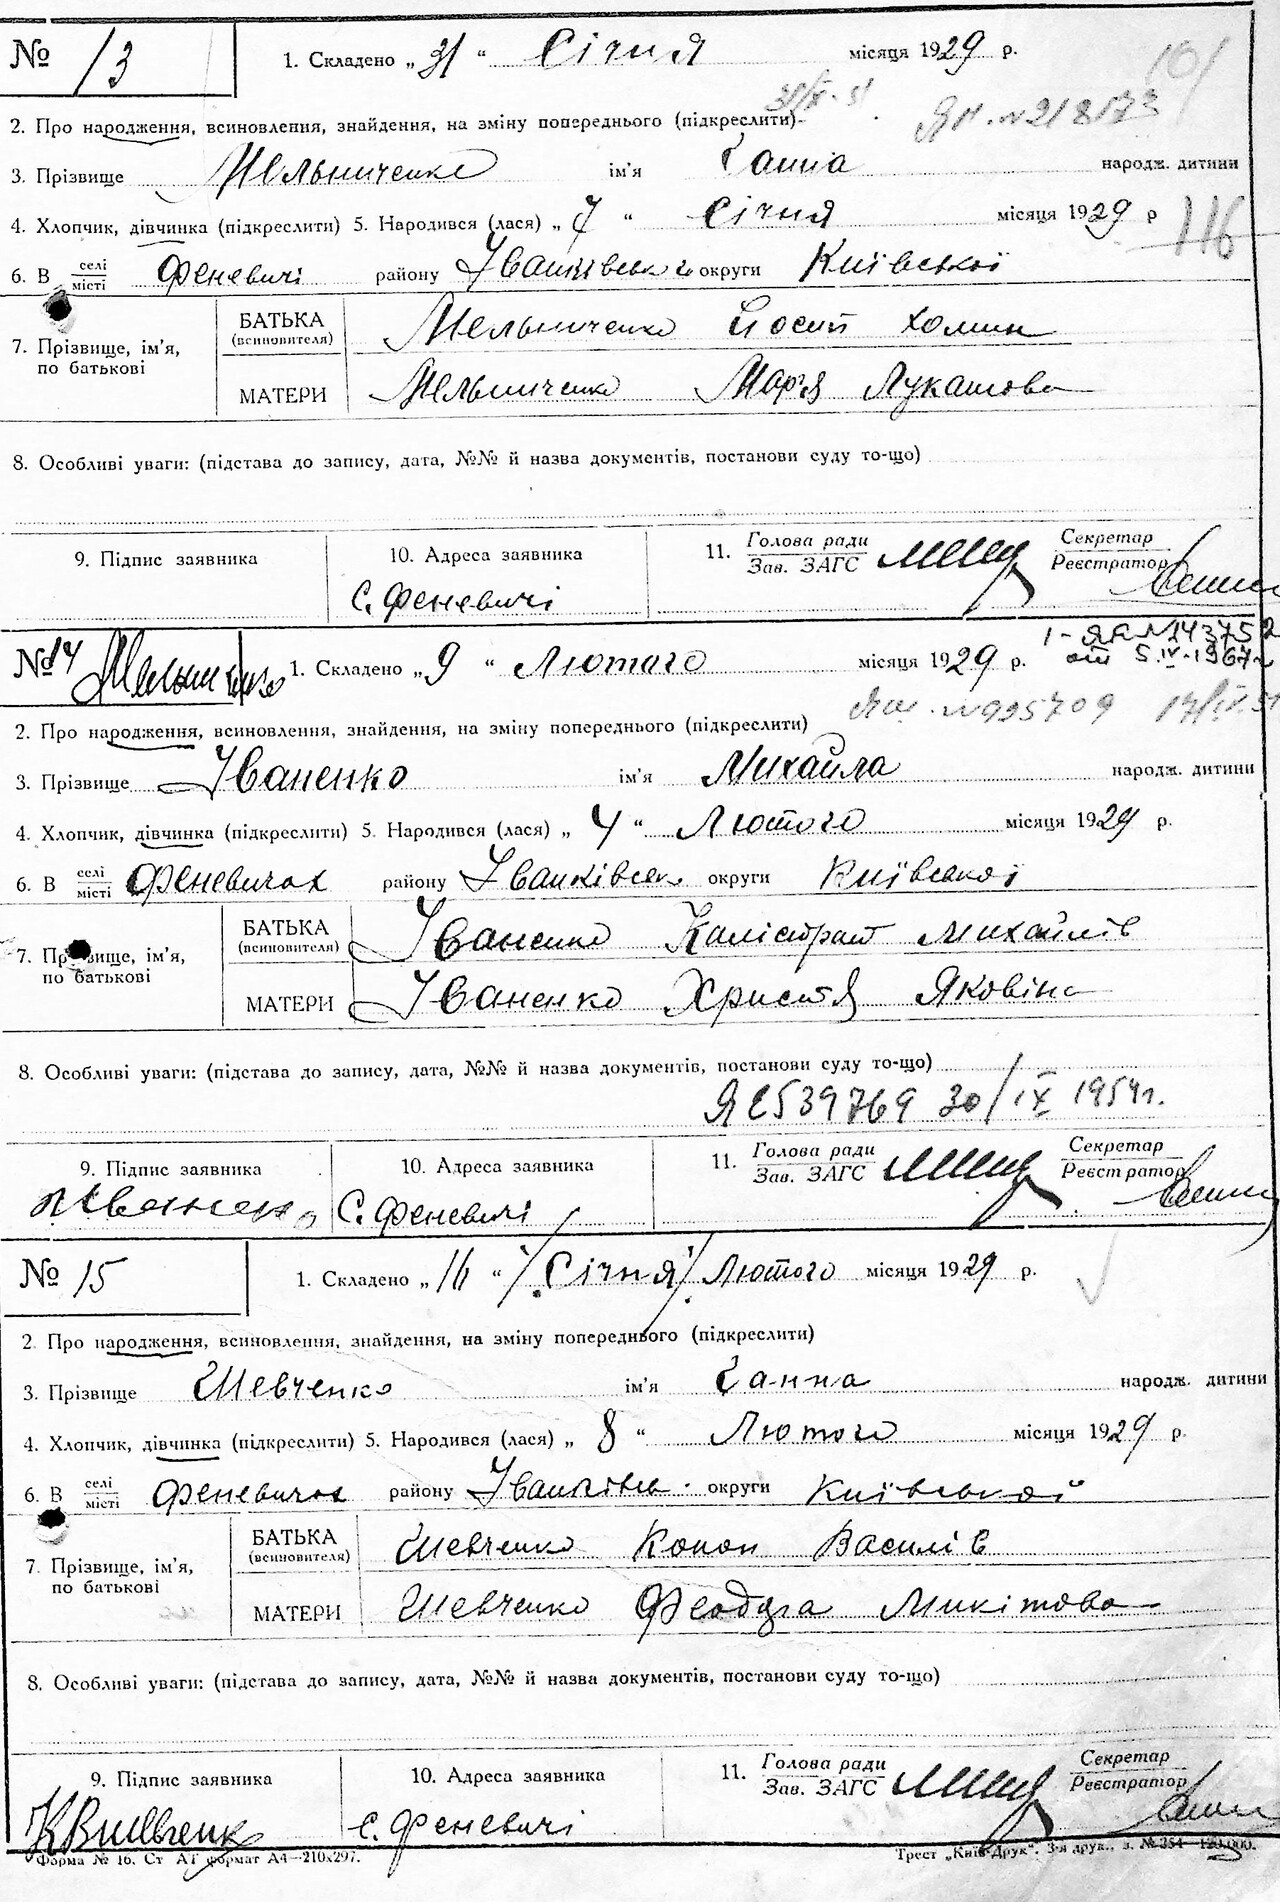 № 13 1. Складено „31“ Січня місяця 1929 р. 101
31/X-51
2. Про народження, всиновлення, знайдення, на зміну попереднього (підкреслити)
3. Прізвище Мельниченко ім'я Ганна народж. дитини
4. Хлопчик, дівчинка (підкреслити) 5. Народився (лася) „7“ Січня місяця 1929 р 116
6. В селі/місті Феневичі району Іванківськ округи Київської
7. Прізвище, ім'я, по батькові
БАТЬКА (всиновителя) Мельниченко Йосип Хомин
МАТЕРИ Мельниченко Мар'я Лукашова
8. Особливі уваги: (підстава до запису, дата, №№ й назва документів, постанови суду то-що)
9. Підпис заявника 10. Адреса заявника 11. Голова ради Секретар
Зав. ЗАГС Реєстратор
с. Феневичі
№ 14 1. Складено „9“ Лютаго місяця 1929 р.
от 5.IV-1967
2. Про народження, всиновлення, знайдення, на зміну попереднього (підкреслити) №995709
3. Прізвище Іваненко ім'я Михайла народж. дитини
4. Хлопчик, дівчинка (підкреслити) 5. Народився (лася) „4“ Лютого місяця 1929 р.
6. В селі/місті Феневичах району Іванківськ округи Київської
7. Прізвище, ім'я, по батькові
БАТЬКА (всиновителя) Іваненко Калістрат Михайлів
МАТЕРИ Іваненко Христя Яковіна
8. Особливі уваги: (підстава до запису, дата, №№ й назва документів, постанови суду то-що)
539769 30/IX 1954г.
9. Підпис заявника 10. Адреса заявника 11. Голова ради Секретар
Зав. ЗАГС Реєстратор
с. Феневичі
№ 15 1. Складено „16“ /Січня/ Лютого місяця 1929 р.
2. Про народження, всиновлення, знайдення, на зміну попереднього (підкреслити)
3. Прізвище Шевченко ім'я Ганна народж. дитини
4. Хлопчик, дівчинка (підкреслити) 5. Народився (лася) „8“ Лютого місяця 1929 р.
6. В селі/місті Феневичах району Іванківськ. округи Київської
7. Прізвище, ім'я, по батькові
БАТЬКА (всиновителя) Шевченко Конон Василів
МАТЕРИ Шевченко Феодора Микітова
8. Особливі уваги: (підстава до запису, дата, №№ й назва документів, постанови суду то-що)
9. Підпис заявника 10. Адреса заявника 11. Голова ради Секретар
Зав. ЗАГС Реєстратор
с. Феневичі
Форма № 16. Ст АТ формат А4—210х297. Трест „Київ-Друк“. 3-я друк., з. № 354—120.000.